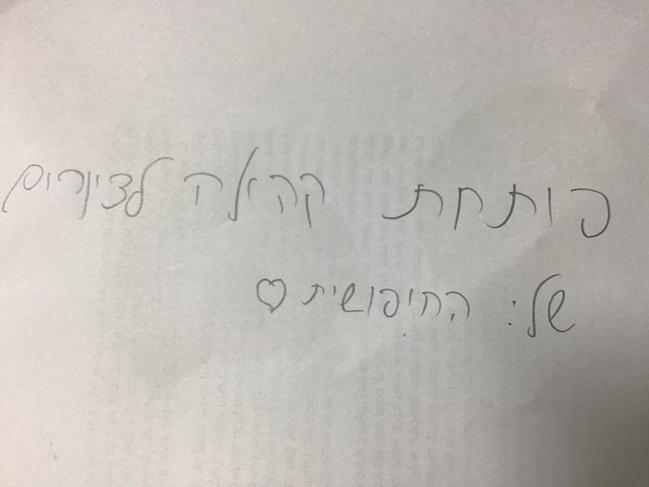 פותחת קהאלה לציורים
של: החיפושית ♡